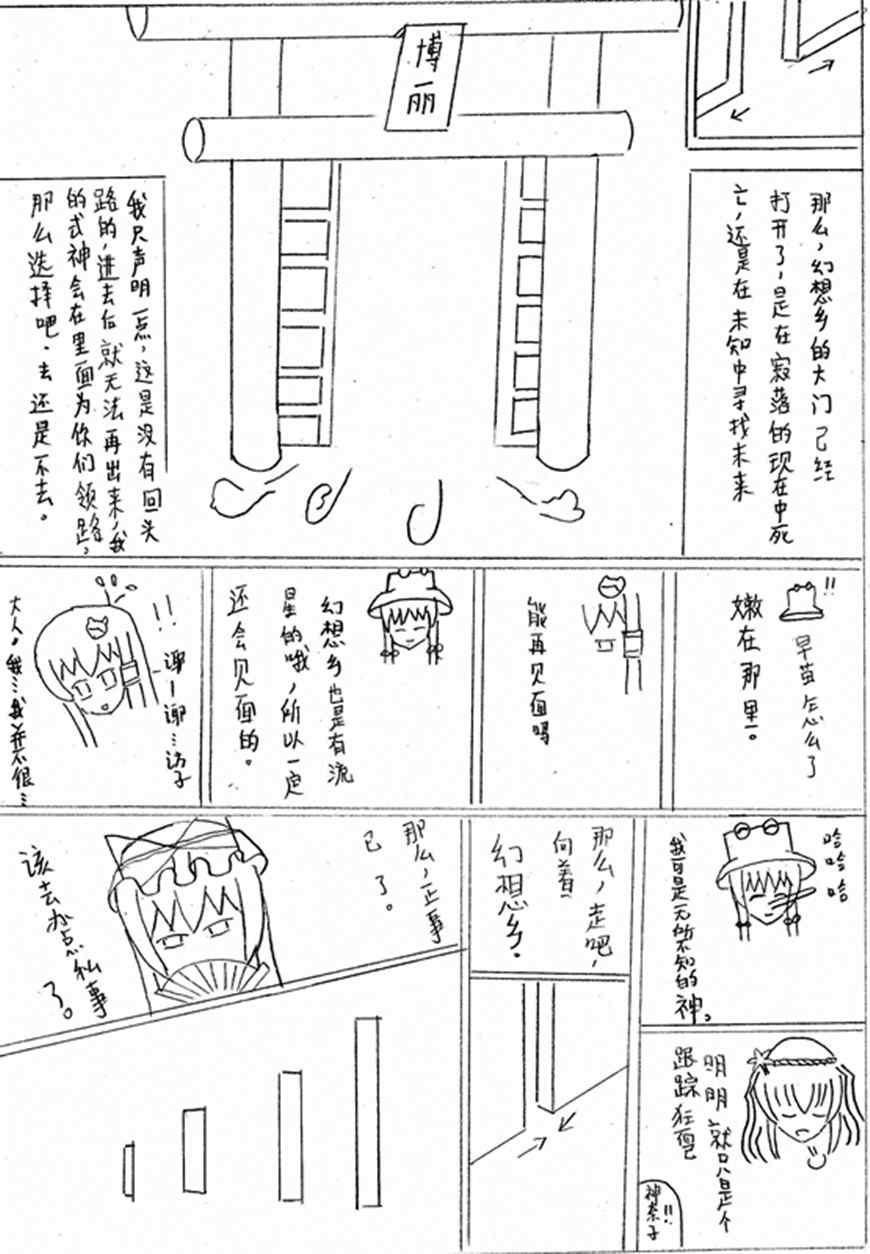 博丽
那么，幻想乡的大门已经
打开了，是在寂落的现在中死
亡，还是在未知中寻找未来
我只声明一点，这是没有回头
路的，进去后就无法再出来，我
的式神会在里面为你们领路，
那么选择吧．去还是不去。
!!
早苗怎么了
嫩在那里。
能再见面吗
幻想乡也是有流
星的哦，所以一定
还会见面的。
!!
谢－谢…访子
大人。我…我并不很…
哈哈哈
我可是无所不知的神。
明明就只是个
跟踪狂罢
!!
神奈子
那么，走吧，
向着
幻想乡．
那么，正事
已了。
该去办点私事
了。